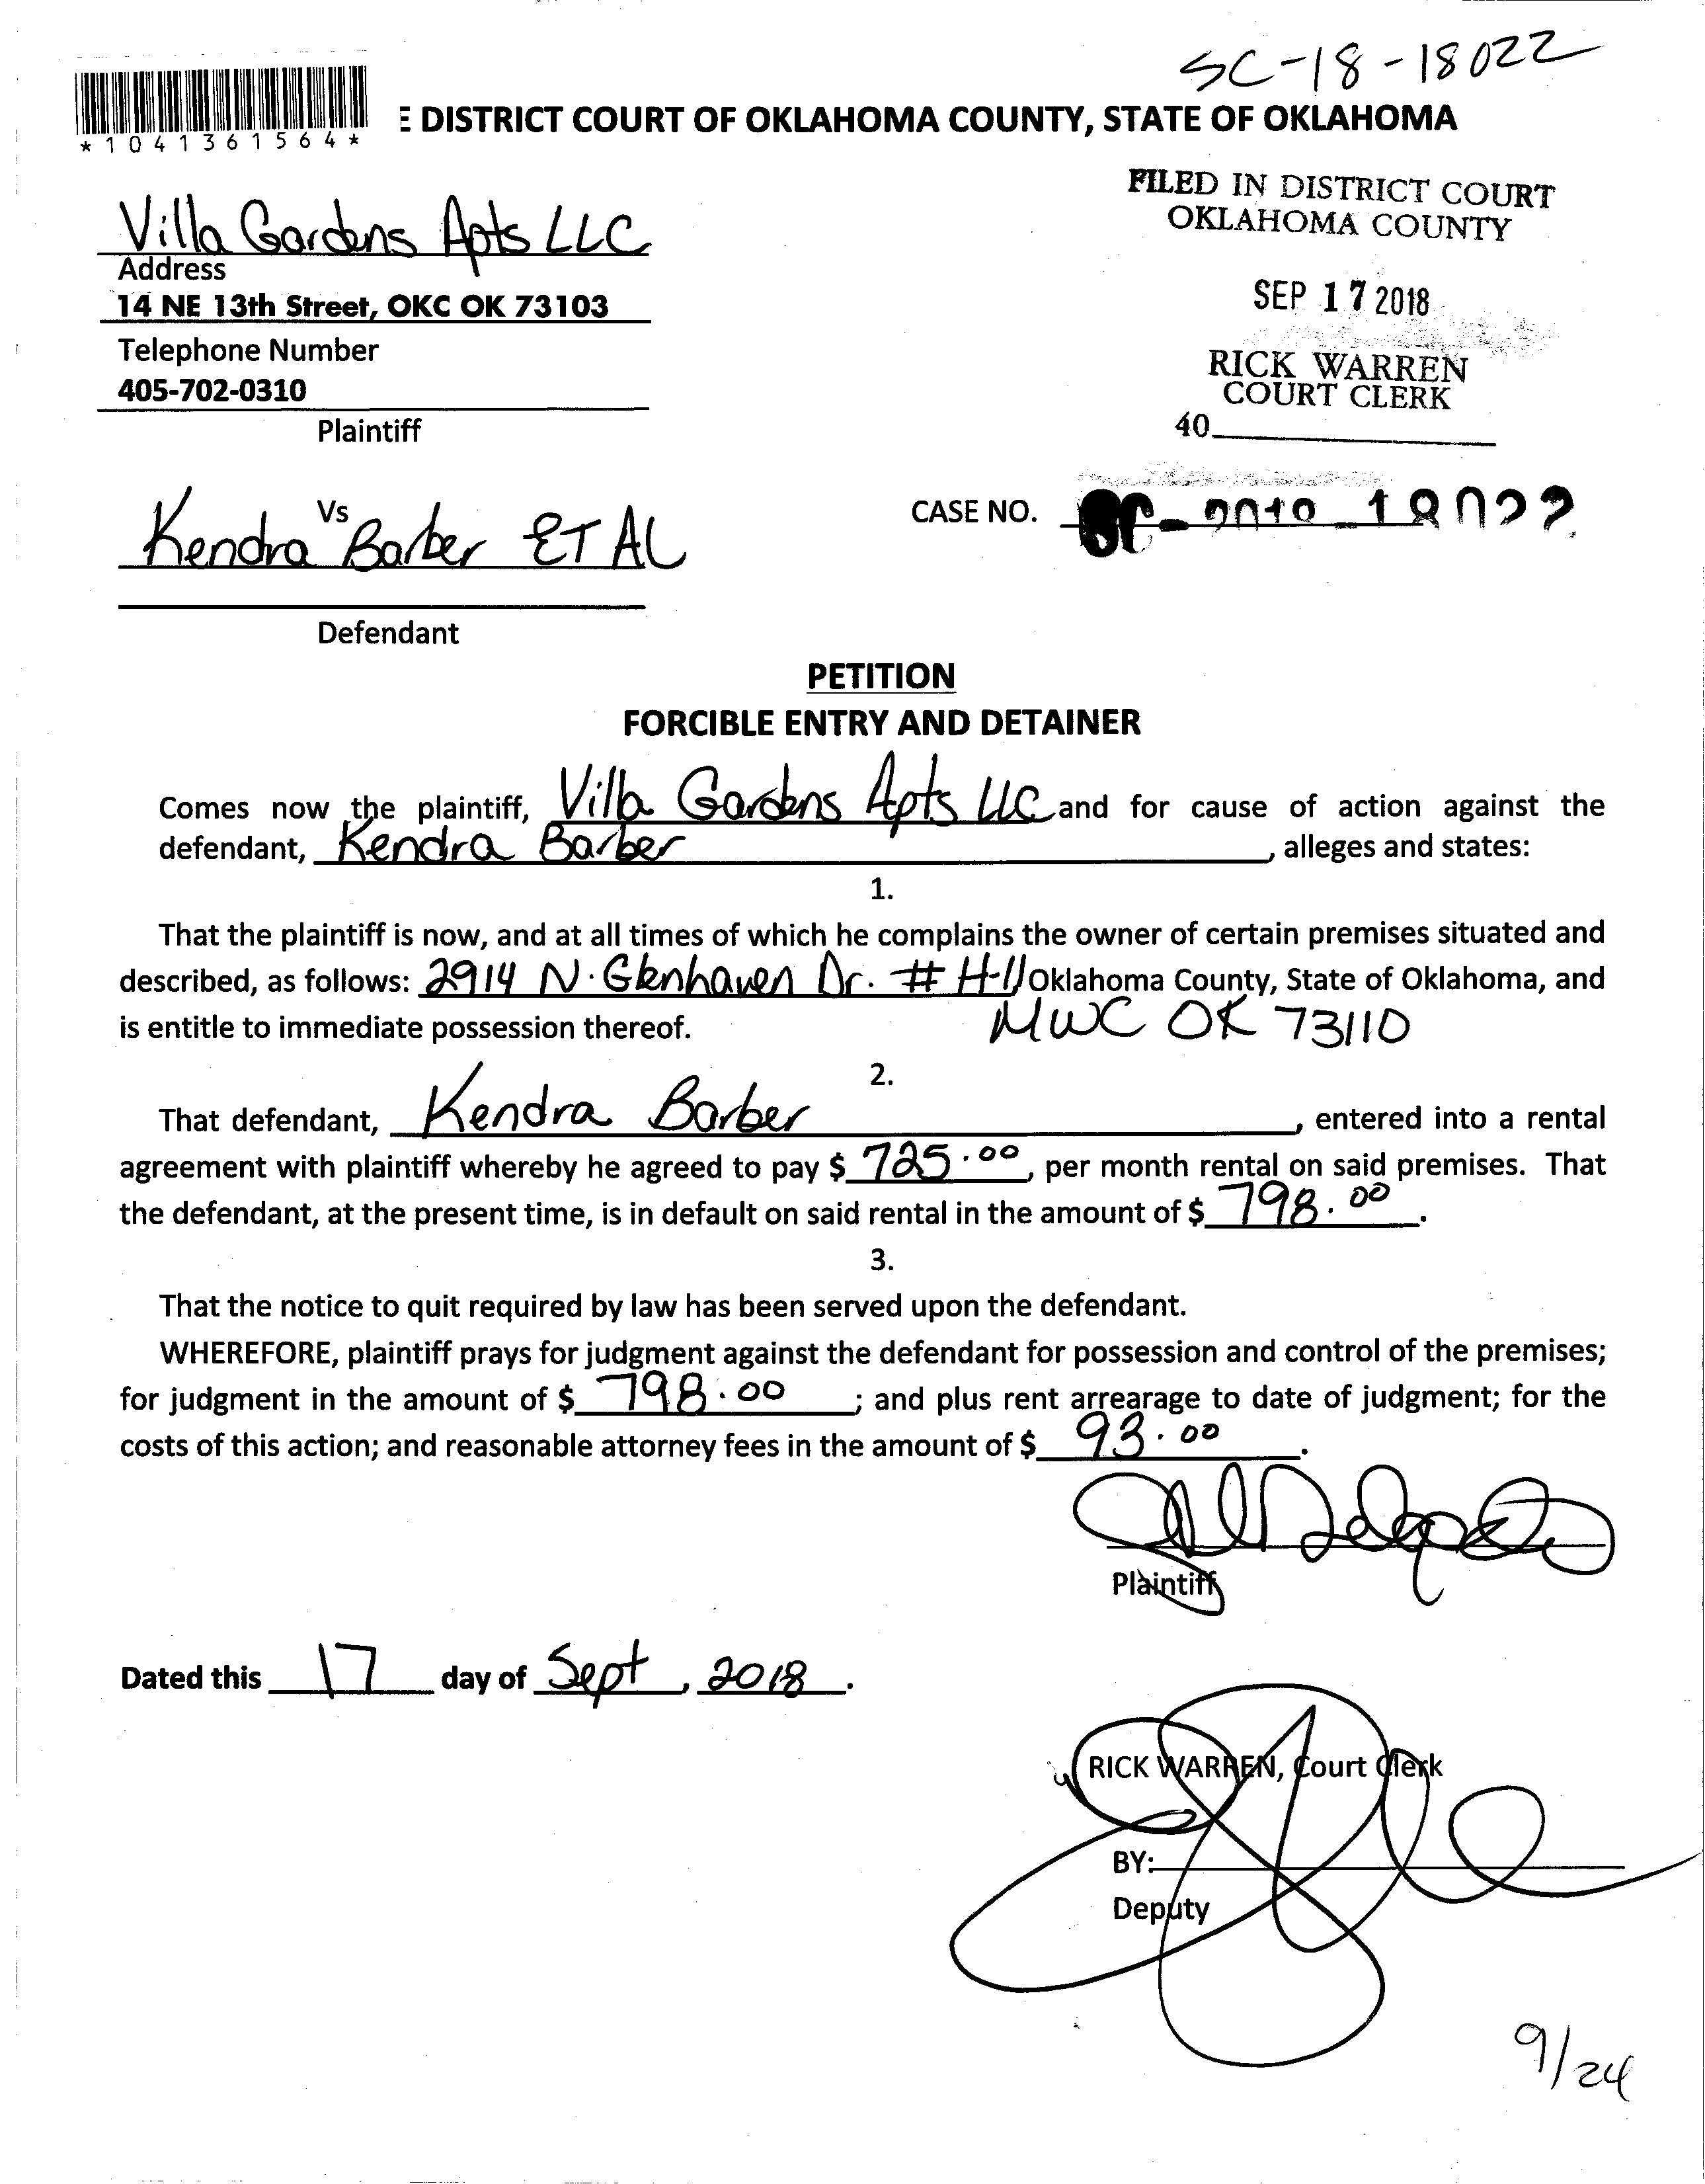 SC-18-18022
*1041361564*
E DISTRICT COURT OF OKLAHOMA COUNTY, STATE OF OKLAHOMA
FILED IN DISTRICT COURT
OKLAHOMA COUNTY
SEP 17 2018
RICK WARREN
COURT CLERK
40
Villa Gardens Apts LLC
Address
14 NE 13th Street, OKC OK 73103
Telephone Number
405-702-0310
Plaintiff
Vs
Kendra Barber ET AL
Defendant
CASE NO. SC-2018-18022
PETITION
FORCIBLE ENTRY AND DETAINER
Comes now the plaintiff, Villa Gardens Apts LLC and for cause of action against the
defendant, Kendra Barber, alleges and states:
1.
That the plaintiff is now, and at all times of which he complains the owner of certain premises situated and
described, as follows: 2914 N. Glenhaven Dr. # H-11 Oklahoma County, State of Oklahoma, and
is entitle to immediate possession thereof. MWC OK 73110
2.
That defendant, Kendra Barber, entered into a rental
agreement with plaintiff whereby he agreed to pay $ 725.00, per month rental on said premises. That
the defendant, at the present time, is in default on said rental in the amount of $ 798.00.
3.
That the notice to quit required by law has been served upon the defendant.
WHEREFORE, plaintiff prays for judgment against the defendant for possession and control of the premises;
for judgment in the amount of $ 798.00; and plus rent arrearage to date of judgment; for the
costs of this action; and reasonable attorney fees in the amount of $ 93.00.
Plaintiff
Dated this 17 day of Sept, 2018.
RICK WARREN, Court Clerk
BY:
Deputy
9/24